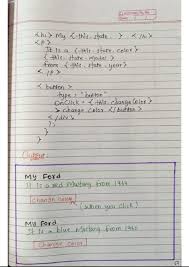 <h1> My {this.state. } </h1>
<p>
It is a {this.state.color}
{this.state.model}
from {this.state.year}
</p>
<button
type = "button"
onClick = {this.changeColor}
> change color </button>
</div>
);
}
}
Output:
My Ford
It is a red Mustang from 1964
Change color
(when you click)
My Ford
It is a blue Mustang from 1964
Change color